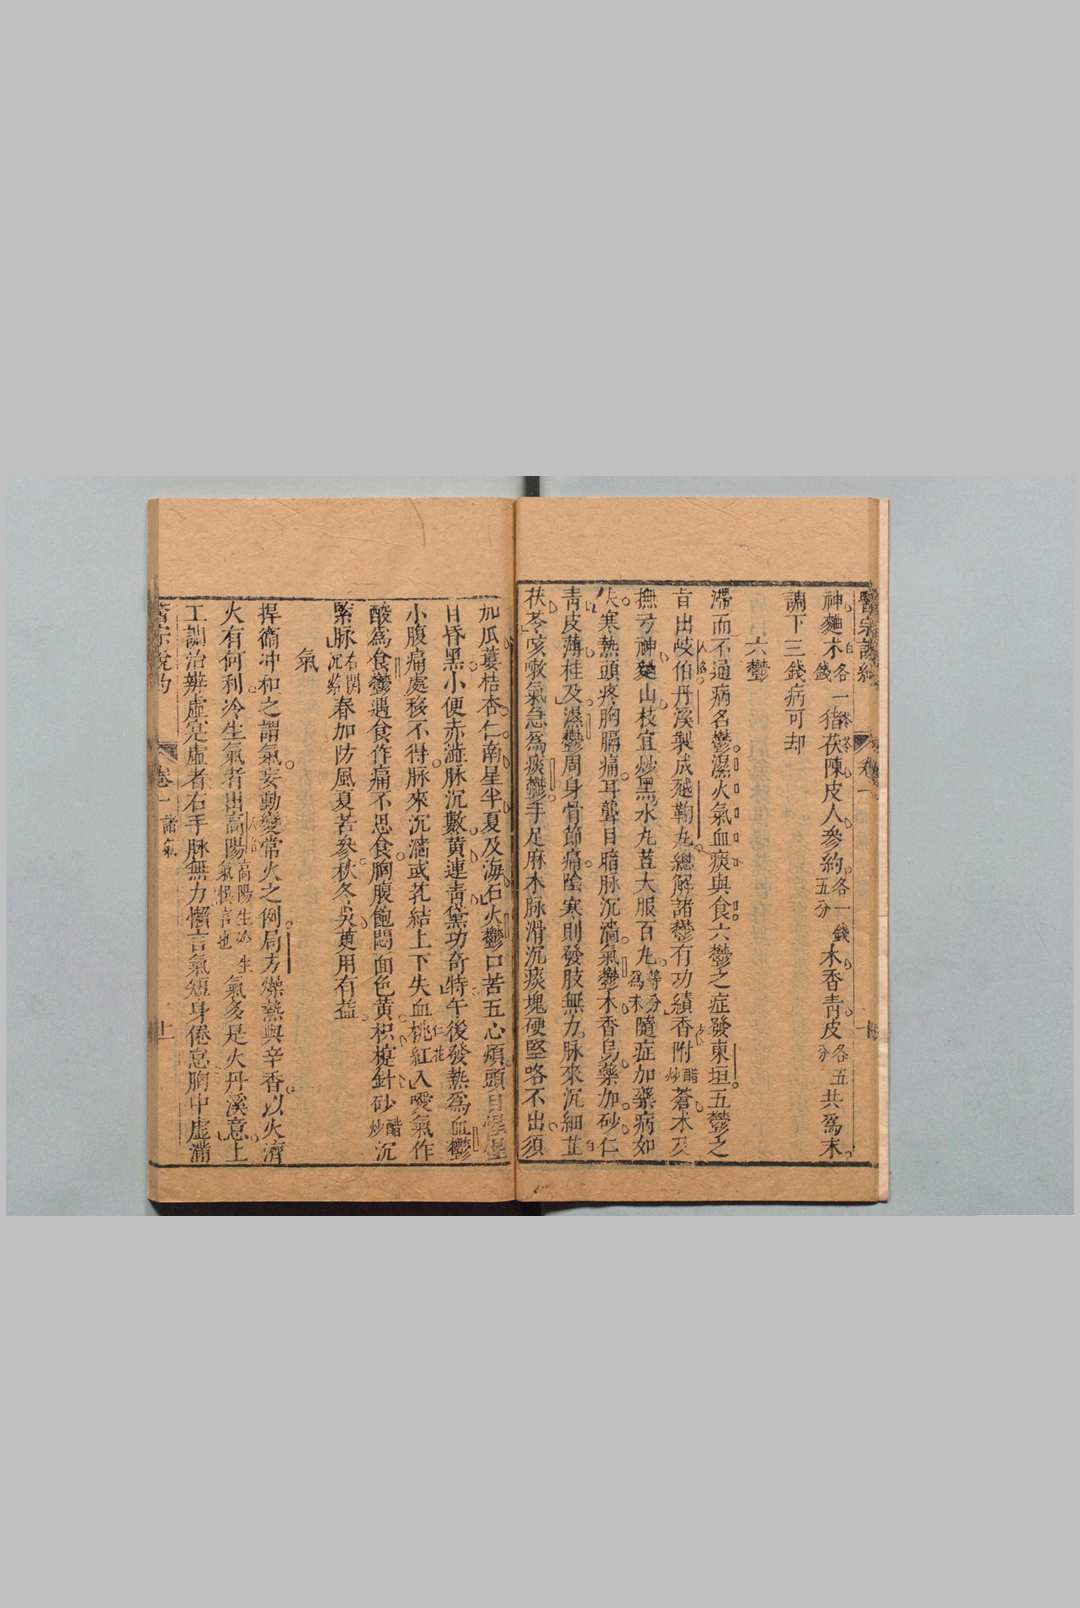 醫宗說約 卷一
神麯木各一猪茯陳皮人參約各一錢木香青皮各五共爲末
調下三錢病可却
六鬱
滯而不通病名鬱濕火氣血痰與食六鬱之症發東垣五鬱之
旨出岐伯丹溪製成越鞠丸總解諸鬱有功績香附醋炒蒼木
撫芎神麯山枝宜炒黑水丸荳大服百丸等分爲末隨症加藥病如
火寒熱頭疼胸膈痛耳聾目暗脉沉濇氣鬱木香烏藥加砂仁
青皮薄桂及濕鬱周身骨節痛陰寒則發肢無力脉來沉細芷
茯苓咳嗽氣急爲痰鬱手足麻木脉滑沉痰塊硬堅咯不出須
加瓜蔞桔杏仁南星半夏及海石火鬱口苦五心煩頭目
目昏黑小便赤澁脉沉數黃連青黛功奇特午後發熱爲血鬱
小腹痛處移不得脉來沉濇或芤結上下失血桃仁紅花入噯氣作
酸爲食鬱遇食作痛不思食胸腹飽悶面色黃枳梹針砂醋炒沉
緊脉右関沉緊春加防風夏苦參秋冬吳茰用有益
氣
捍衛冲和之謂氣妄動變常火之例局方燥熱與辛香以火濟
火有何利冷生氣者出高陽高陽生冷生氣悞言也氣多是火丹溪意上
工調治辨虛實虛者右手脉無力懶言氣短身倦怠胸中虛滿
醫宗說約 卷一 諸氣 上